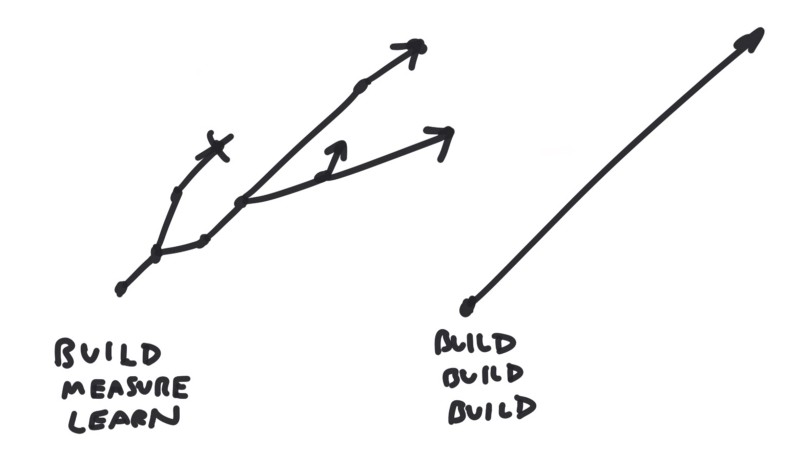 BUILD
MEASURE
LEARN
BUILD
BUILD
BUILD